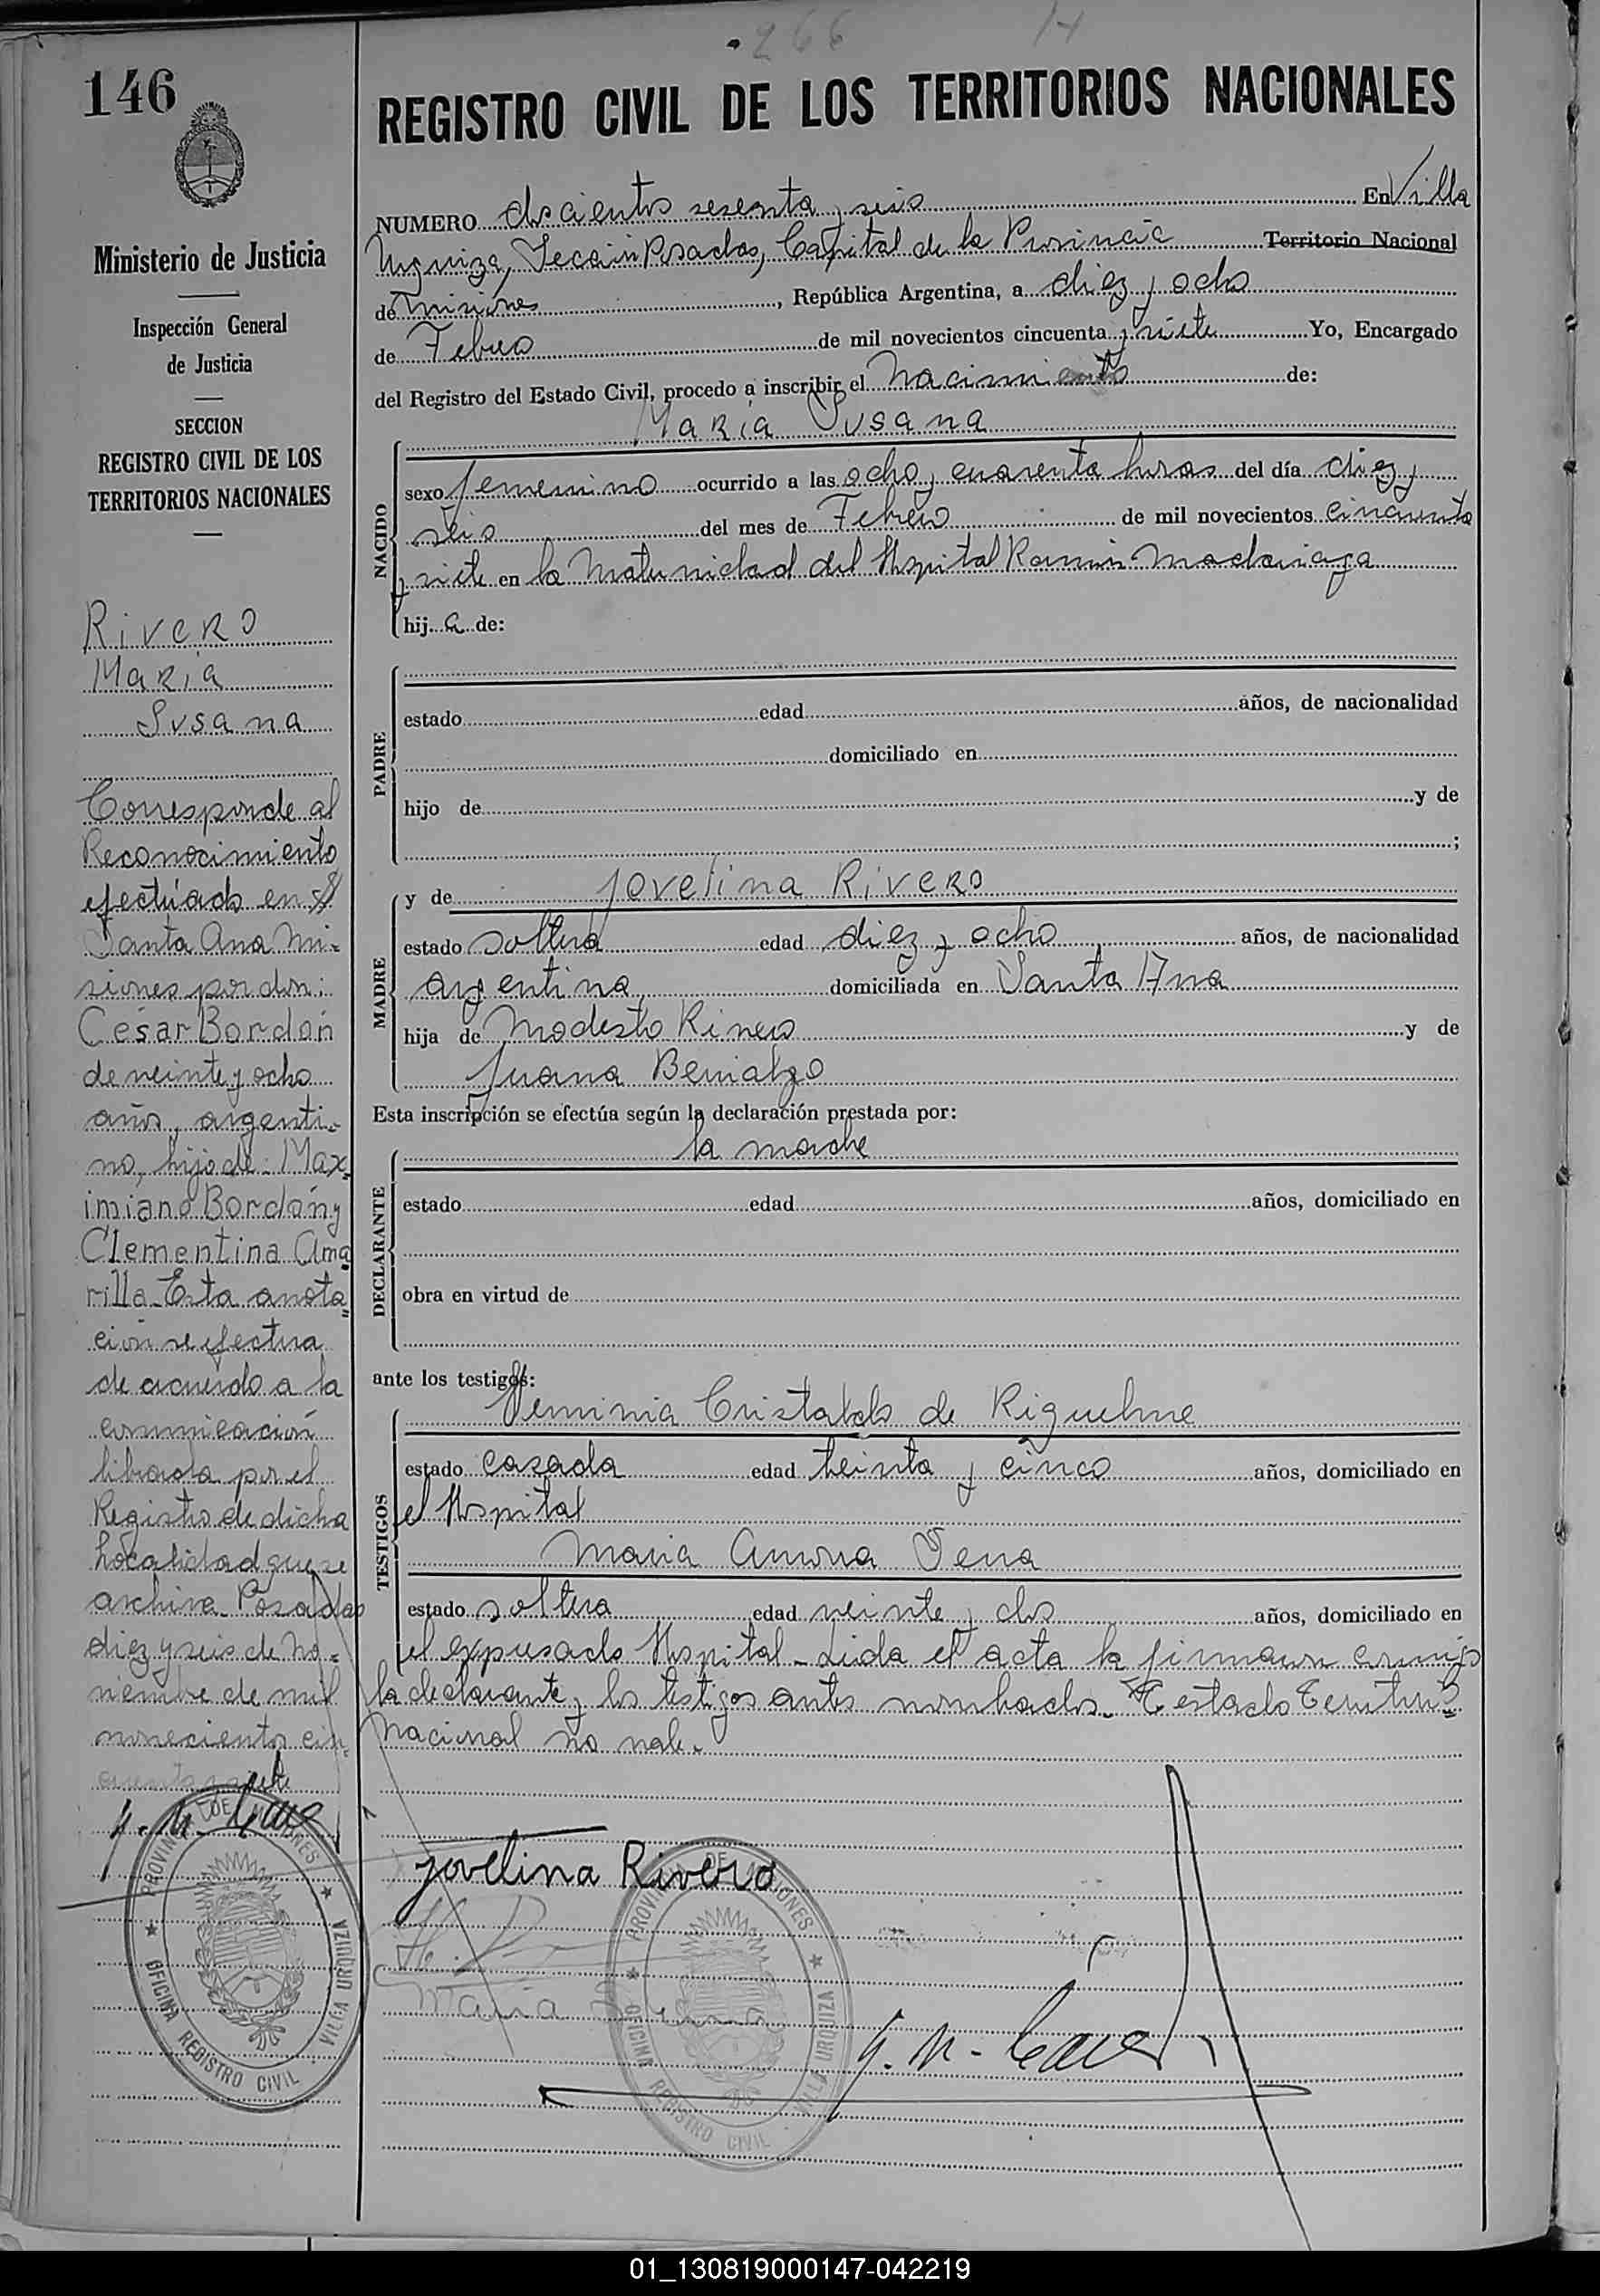 266
146
REGISTRO CIVIL DE LOS TERRITORIOS NACIONALES
Ministerio de Justicia
Inspección General
de Justicia
SECCION
REGISTRO CIVIL DE LOS
TERRITORIOS NACIONALES
Rivero
María
Susana
Corresponde al
Reconocimiento
efectuado en
Santa Ana Mi-
siones por don:
César Bordón
de veinte y ocho
años, argenti-
no, hijo de: Max-
imiano Bordón y
Clementina Ama
rilla. Esta anota
ción se efectua
de acuerdo a la
comunicación
librada por el
Registro de dicha
Localidad que se
archiva. Posadas
diez y seis de No-
viembre de mil
novecientos cin-
cuenta y siete
NUMERO doscientos sesenta y seis En Villa
Urquiza, Sección Posadas, Capital de la Provincia Territorio Nacional
de Misiones, República Argentina, a diez y ocho
de Febrero de mil novecientos cincuenta y siete Yo, Encargado
del Registro del Estado Civil, procedo a inscribir el Nacimiento de:
María Susana
NACIDO
sexo femenino ocurrido a las ocho y cuarenta horas del día diez y
seis del mes de Febrero de mil novecientos cincuenta
y siete en la Maternidad del Hospital Ramón Madariaga
hija de:
PADRE
estado edad años, de nacionalidad
domiciliado en
hijo de y de
;
MADRE
y de Jovelina Rivero
estado soltera edad diez y ocho años, de nacionalidad
argentina domiciliada en Santa Ana
hija de Modesto Rivero y de
Juana
Esta inscripción se efectúa según la declaración prestada por:
la madre
DECLARANTE
estado edad años, domiciliado en
obra en virtud de
ante los testigos:
TESTIGOS
Cristaldo de Riquelme
estado casada edad treinta y cinco años, domiciliado en
el Hospital
María
estado soltera edad veinte y dos años, domiciliado en
el expresado Hospital - Leida el acta la firmaron conmigo
la declarante y los testigos antes nombrados. Testado Territorio
Nacional no vale.
Jovelina Rivero
María
PROVINCIA DE MISIONES
OFICINA REGISTRO CIVIL
VILLA URQUIZA
PROVINCIA DE MISIONES
OFICINA REGISTRO CIVIL
VILLA URQUIZA
01_130819000147-042219